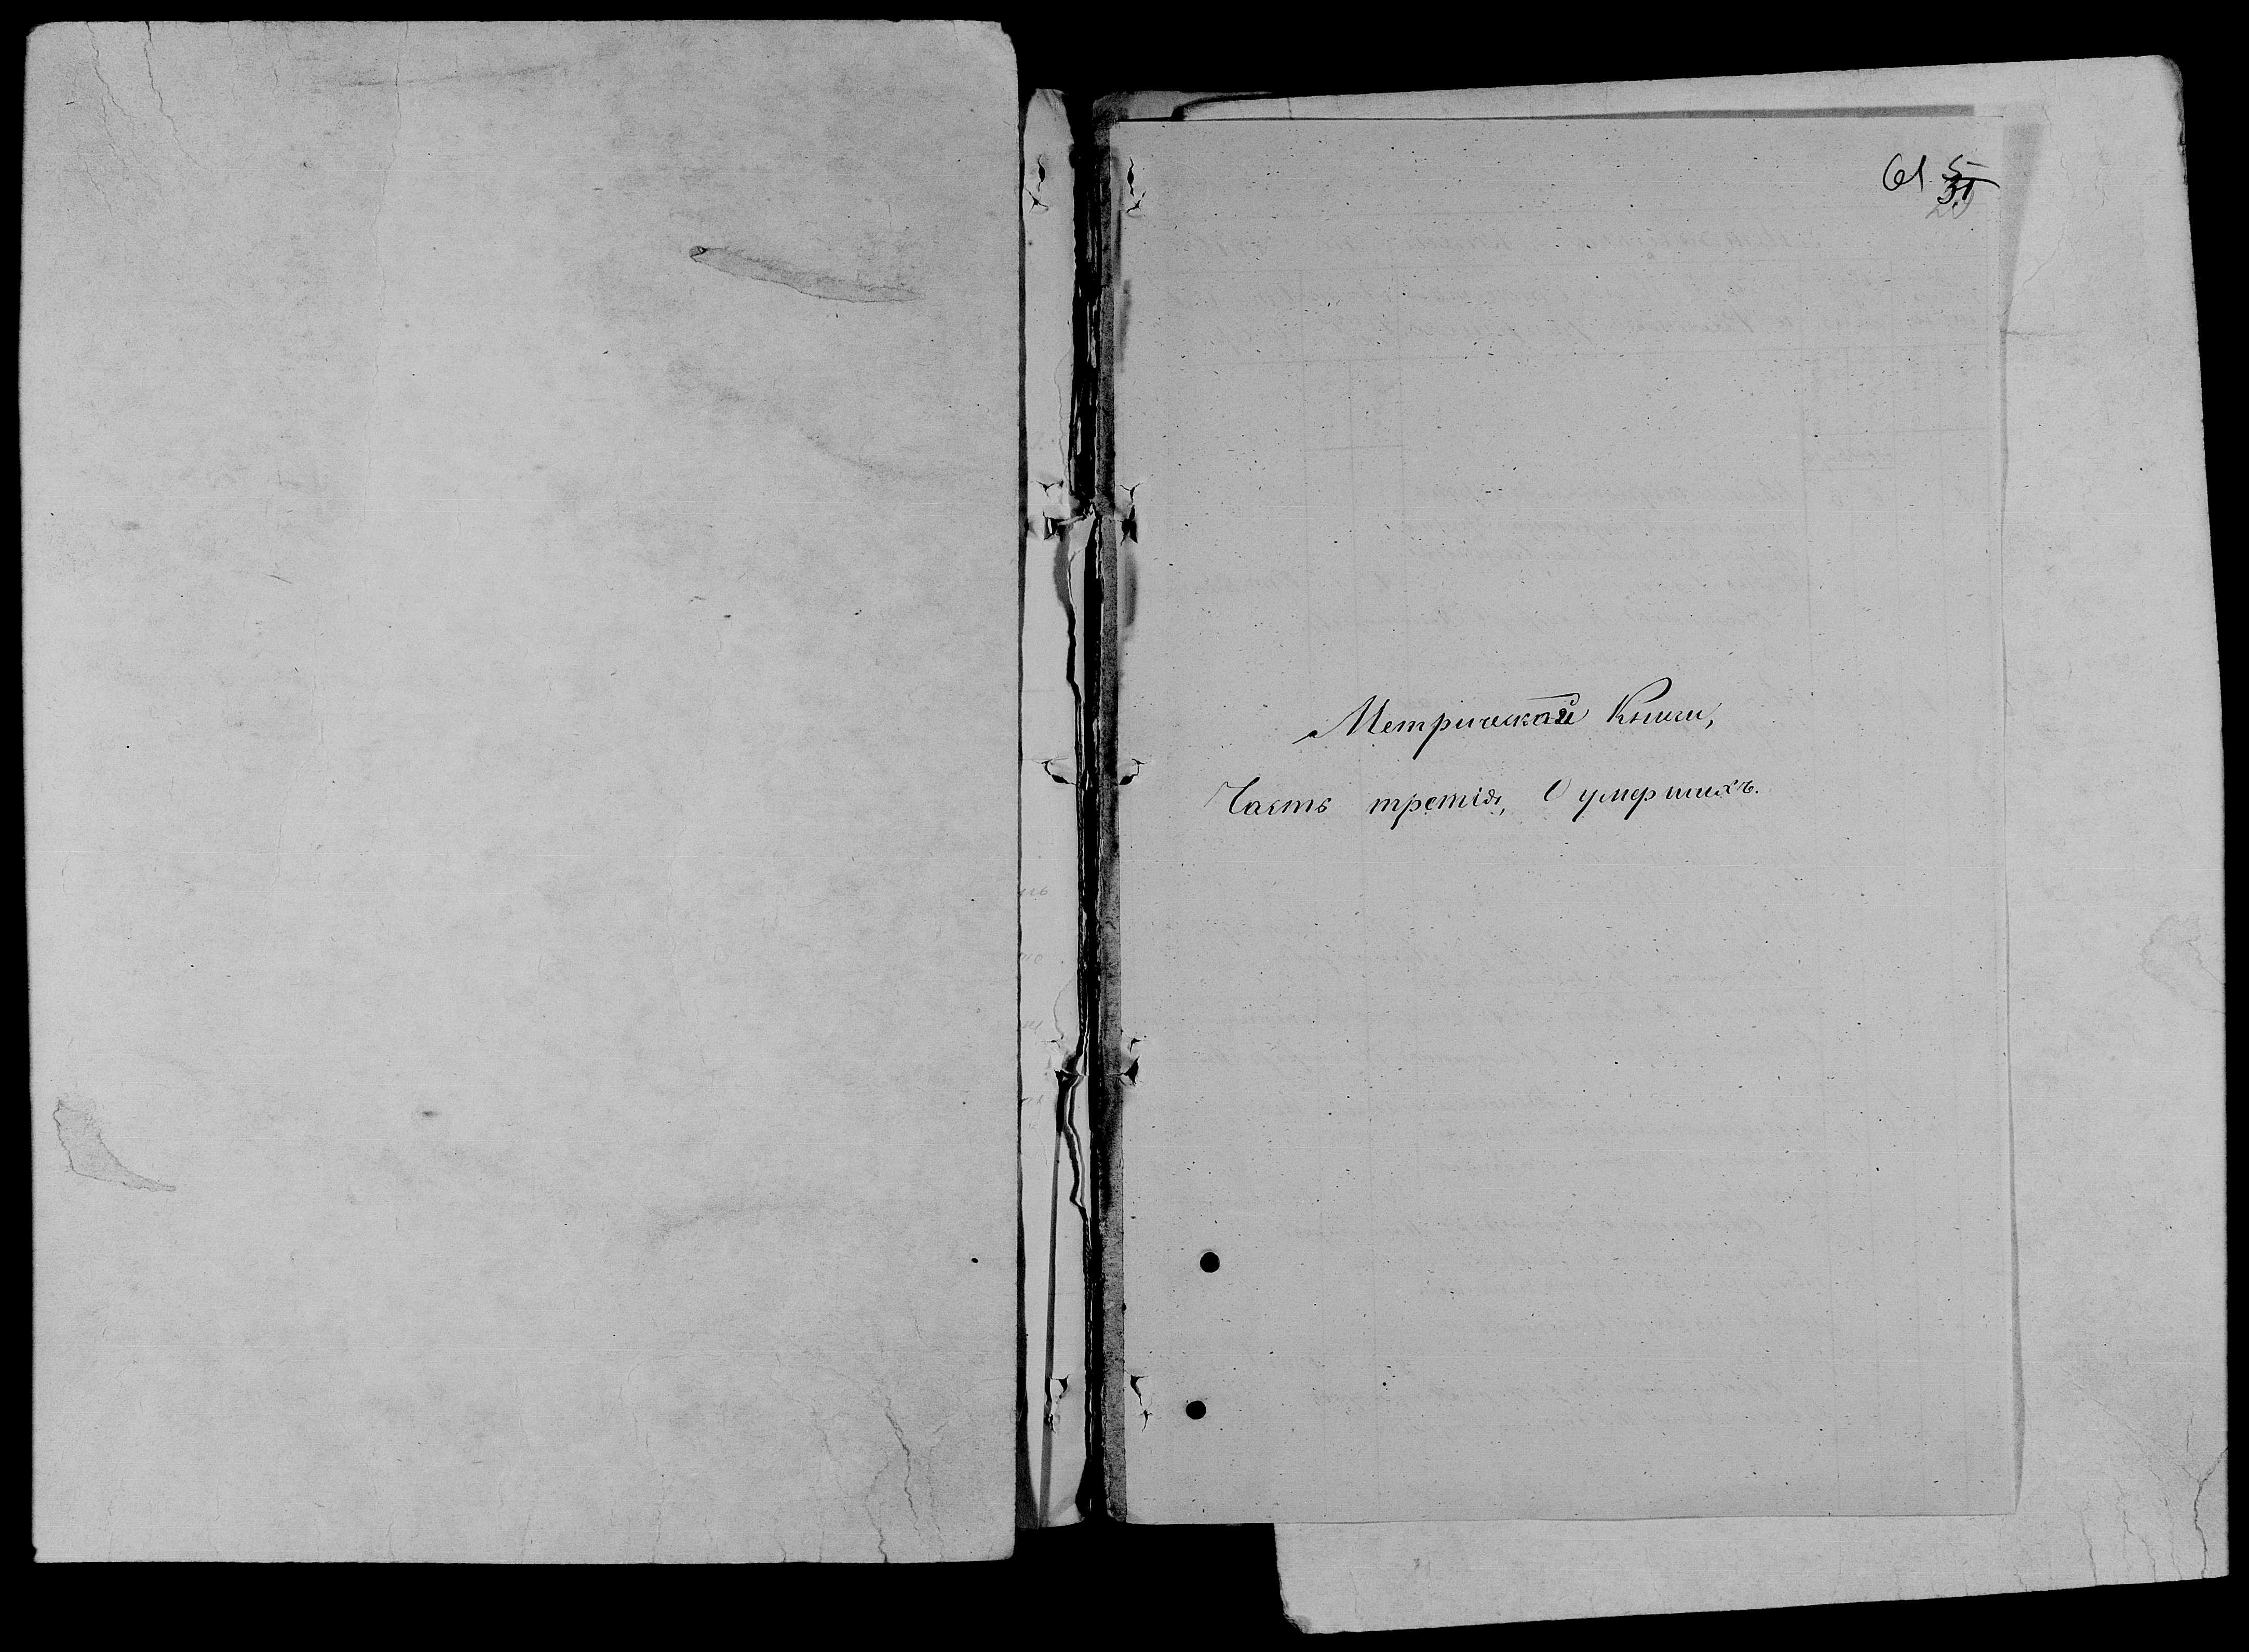 61 5
31
20
Метрической Книги,
Часть третія, О умершихъ.